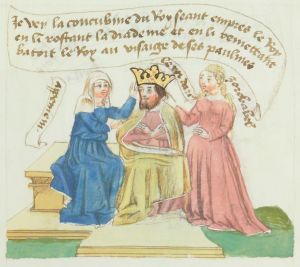 Je vey la concubine du Roy seant empres le Roy
en li rostant la diademe et en la remettant
batoit le Roy au visaige de ses paulmes